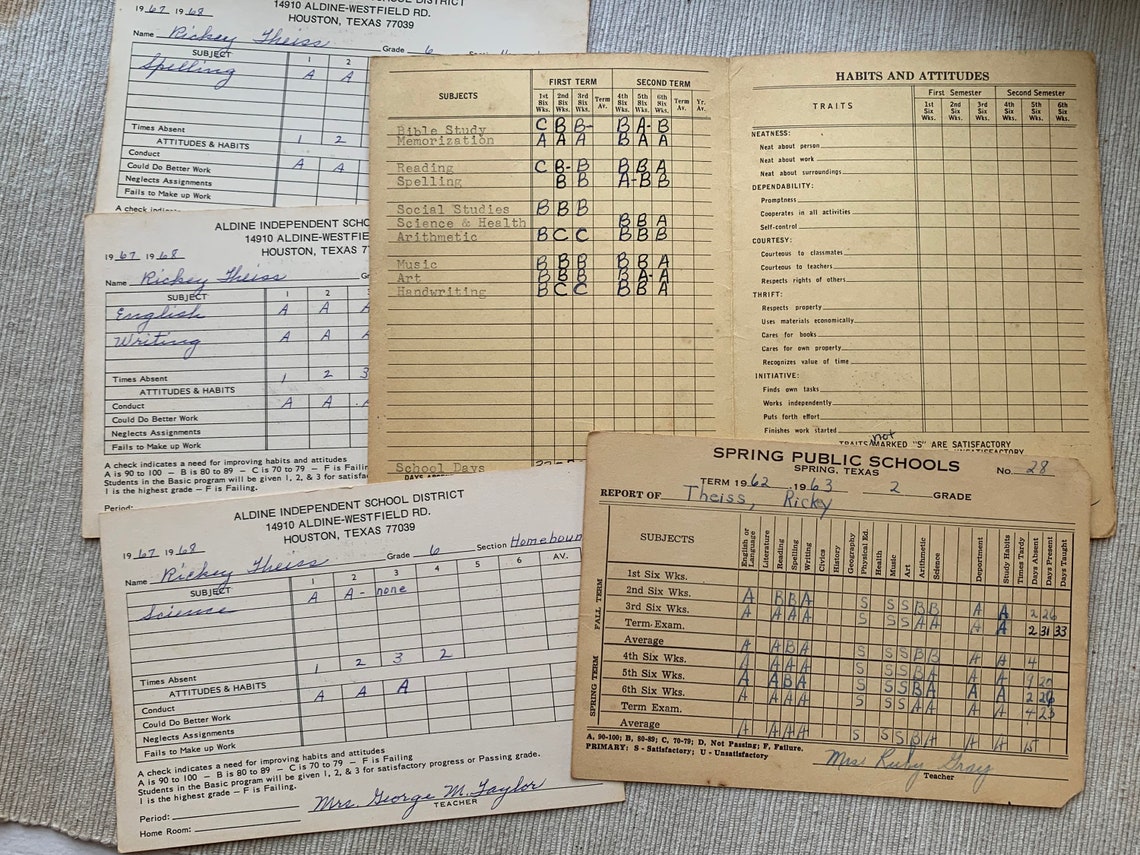 SCHOOL DISTRICT
14910 ALDINE-WESTFIELD RD.
HOUSTON, TEXAS 77039
19 67 19 68
Name Rickey Theiss Grade 6
SUBJECT 1 2
Spelling A A
Times Absent 1 2
ATTITUDES & HABITS
Conduct A A
Could Do Better Work
Neglects Assignments
Fails to Make up Work
A check
ALDINE INDEPENDENT SCHO
14910 ALDINE-WESTFIE
HOUSTON, TEXAS 7
19 67 19 68
Name Rickey Theiss
SUBJECT 1 2
English A A A
Writing A A A
Times Absent 1 2 3
ATTITUDES & HABITS
Conduct A A A
Could Do Better Work
Neglects Assignments
Fails to Make up Work
A check indicates a need for improving habits and attitudes
A is 90 to 100 — B is 80 to 89 — C is 70 to 79 — F is Failin
Students in the Basic program will be given 1, 2, & 3 for satisfac
1 is the highest grade — F is Failing.
Period:
ALDINE INDEPENDENT SCHOOL DISTRICT
14910 ALDINE-WESTFIELD RD.
HOUSTON, TEXAS 77039
19 67 19 68
Name Rickey Theiss Grade 6 Section Homeboun
SUBJECT 1 2 3 4 5 6 AV.
Science A A- none
Times Absent 1 2 3 2
ATTITUDES & HABITS
Conduct A A A
Could Do Better Work
Neglects Assignments
Fails to Make up Work
A check indicates a need for improving habits and attitudes
A is 90 to 100 — B is 80 to 89 — C is 70 to 79 — F is Failing
Students in the Basic program will be given 1, 2, & 3 for satisfactory progress or Passing grade.
1 is the highest grade — F is Failing.
Mrs. George M. Taylor
Period: TEACHER
Home Room:
SUBJECTS FIRST TERM SECOND TERM
1st Six Wks. 2nd Six Wks. 3rd Six Wks. Term Av. 4th Six Wks. 5th Six Wks. 6th Six Wks. Term Av. Yr. Av.
Bible Study C B B- B A- B
Memorization A A A B A A
Reading C B- B B B A
Spelling B B A- B B
Social Studies B B B
Science & Health B B A
Arithmetic B C C B B B
Music B B B B B A
Art B B B B A- A
Handwriting B C C B B A
School Days
HABITS AND ATTITUDES
TRAITS First Semester Second Semester
1st Six Wks. 2nd Six Wks. 3rd Six Wks. 4th Six Wks. 5th Six Wks. 6th Six Wks.
NEATNESS:
Neat about person
Neat about work
Neat about surroundings
DEPENDABILITY:
Promptness
Cooperates in all activities
Self-control
COURTESY:
Courteous to classmates
Courteous to teachers
Respects rights of others
THRIFT:
Respects property
Uses materials economically
Cares for books
Cares for own property
Recognizes value of time
INITIATIVE:
Finds own tasks
Works independently
Puts forth effort
Finishes work started
TRAITS not MARKED "S" ARE SATISFACTORY
SPRING PUBLIC SCHOOLS
SPRING, TEXAS No. 28
TERM 19 62 19 63 2 GRADE
REPORT OF Theiss, Ricky
SUBJECTS English or Language Literature Reading Spelling Writing Civics History Geography Physical Ed. Health Music Art Arithmetic Science Department Study Habits Times Tardy Days Absent Days Present Days Taught
FALL TERM
1st Six Wks.
2nd Six Wks. A B B A S S S B B A A 2 26
3rd Six Wks. A A A A S S S A A A A 2 31 33
Term-Exam.
Average A A B A S S S B B A A 4
SPRING TERM
4th Six Wks.
5th Six Wks.
6th Six Wks.
Term Exam.
Average
A, 90-100; B, 80-89; C, 70-79; D, Not Passing; F, Failure.
PRIMARY: S - Satisfactory; U - Unsatisfactory
Mrs Ruby Gray
Teacher